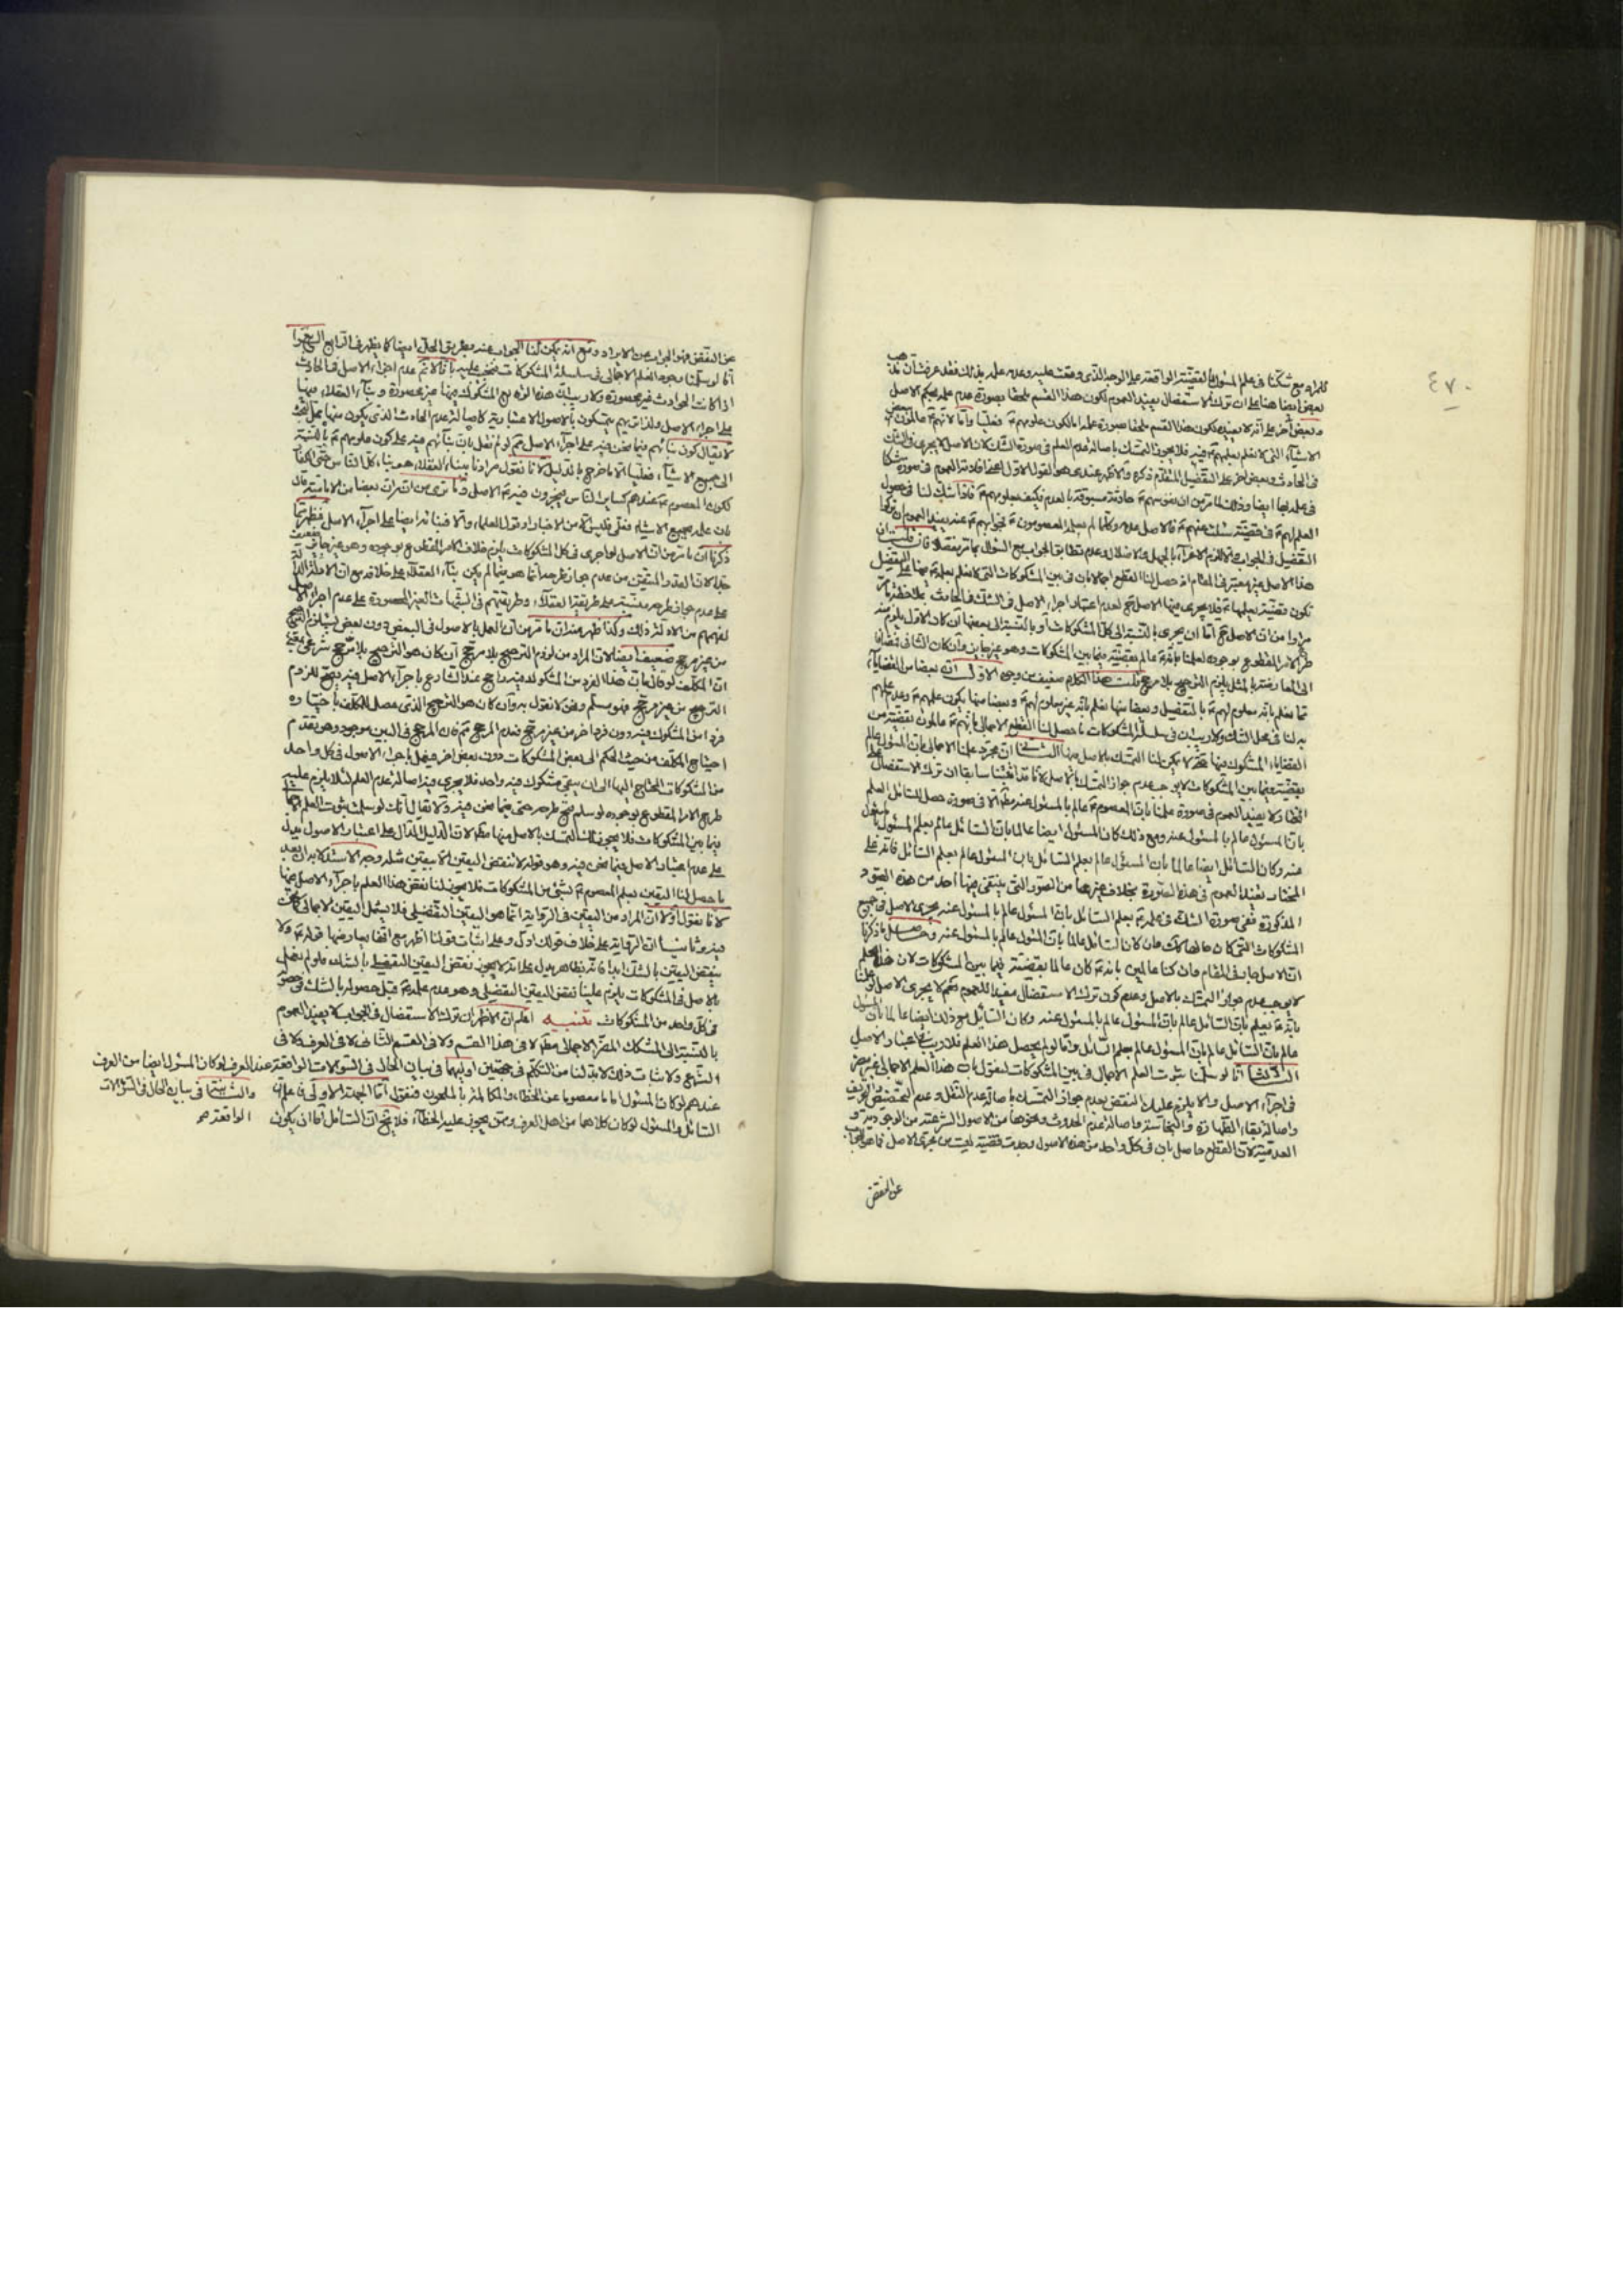 ٤٧٠
كلامه مع شكنا في علم المسئول بالقضية الواقعة على الوجه الذي وقعت عليه وعدم علمه بذلك فقد عرفت أن مذهب
بعض ايضا هنا على ان ترك الاستفصال يفيد العموم لكون هذا القسم ملحقا بصورة عدم علمه بحكم الاصل
وبعض آخر على انه لا يفيده لكون هذا القسم ملحقا بصورة علمه
الاشياء التي لا نعلم بعلمهم فيه فلا يجوز التمسك باصالة عدم العلم في صورة الشك لان الاصل لا يجري في الشك
في الحادث وبعض آخر على التفصيل المتقدم ذكره والاظهر عندي هو القول الاول
التفصيل في الجواب والا لزم الاغراء بالجهل والاضلال وعدم تطابق الجواب مع السؤال كما مر تفصيله فان قلت ان
هذا الاصل غير معتبر في المقام اذ حصل لنا القطع اجمالا بان في بين المشكوكات التي لا نعلم بعلمه بها على التفصيل
تكون قضية يعلمها فلا يجري فيها الاصل لعدم اعتبار اجراء الاصل في الشك في الحادث
مرارا من ان الاصل اما ان يجري بالنسبة الى كل المشكوكات أو بالنسبة الى بعضها ان كان الاول يلزم منه
طرح الامر المقطوع بوجوده لعلمنا بانه عالم بقضية فيما بين المشكوكات وهو غير جايز وان كان الثاني
الى المعارضة بالمثل يلزم الترجيح بلا مرجح قلت هذا الكلام ضعيف من وجوه الاول انه بعضا من القضايا
مما نعلم بانه معلوم لهم بالتفصيل وبعضا منها نعلم بانه غير معلوم لهم وبعضا منها يكون علمهم وعدم علمهم
به لنا في محل الشك ولا ريب ان في سلسلة المشكوكات ما حصل لنا القطع الاجمالي بانهم عالمون بقضية من
القضايا المشكوك فيها حتى لا يمكن لنا التمسك بالاصل فيها الثاني ان مجرد علمنا الاجمالي بان المسئول عالم
بقضية فيما بين المشكوكات لا يوجب عدم جواز التمسك بالاصل لانا قد اثبتنا سابقا ان ترك الاستفصال
انما لا يفيد العموم في صورة علمنا بان المعصوم عالم بالمسئول عنه مطلقا الا في صورة حصل للسائل العلم
بان المسئول عالم بالمسئول عنه ومع ذلك كان المسئول ايضا عالما بان السائل عالم بعلم المسئول بالمسئول
عنه وكان السائل ايضا عالما بان المسئول عالم بعلم السائل بان المسئول عالم بعلم السائل فانه على
المختار يفيد العموم في هذه الصورة بخلاف غيرها من الصور التي ينتفي فيها أحد من هذه القيود
المذكورة ففي صورة الشك في علمه بعلم السائل بان المسئول عالم بالمسئول عنه يجري الاصل في جميع
المشكوكات التي كان حالها كذلك فان كان السائل عالما بان المسئول عالم بالمسئول عنه وحاصل ما ذكرنا
ان الاصل جار في المقام وان كنا عالمين بانه كان عالما بقضية فيما بين المشكوكات لان هذا العلم
لا يوجب عدم جواز التمسك بالاصل وعدم كون ترك الاستفصال مفيدا للعموم نعم لا يجري الاصل لو علمنا
بانه يعلم بان السائل عالم بان المسئول عالم بالمسئول عنه وكان السائل مع ذلك ايضا عالما بان المسئول
عالم بان السائل عالم بان المسئول عالم بعلم السائل واما لو لم يحصل هذا العلم فلا ريب في اعتبار الاصل
الثالث انا لو سلمنا ثبوت العلم الاجمالي في بين المشكوكات لنقول بان هذا العلم الاجمالي غير مضر
في اجراء الاصل والا يلزم عليك النقض بعدم جواز التمسك باصالة عدم النقل وعدم التخصيص
واصالة بقاء الطهارة والنجاسة واصالة عدم الحدوث ونحوها من الاصول الشرعية من الوجودية و
العدمية لان القطع حاصل بان في كل واحد من هذه الاصول وجدت قضية ليست من مجرى الاصل فما هو الجواب
عن النقض
عن النقض فهو الجواب عن الايراد ومع انه يمكن لنا الجواب عنه بطريق الحل ايضا كما يظهر في الرابع
انا لو سلمنا وجود العلم الاجمالي في سلسلة المشكوكات فنجيب عليه بانا لا نم عدم اجراء الاصل في الحادث
اذا كانت الحوادث غير محصورة ولا ريب ان هذه الوقايع المشكوك فيها غير محصورة وبناء العقلاء فيها
على اجراء الاصل ولذا تريهم يتمسكون بالاصول الاعتبارية كاصالة عدم الحادث الذي يكون منها محل البحث
لا يقال كون بنائهم فيما نحن فيه على اجراء الاصل مم لو لم نقل بان بنائهم فيه على كون معلومهم بالنسبة
الى جميع الاشياء فعليا الا ما خرج بالدليل لانا نقول مرادنا ببناء العقلاء هو بناء كل الناس حتى الكفار
لكون المعصوم عندهم كساير الناس فيجرون فيه الاصل وما ترى من ان بعضا من الامامية قال
بان علمه بجميع الاشياء فعلي
ذكرنا ان ما مر من ان الاصل لو اجري في كل المشكوكات يلزم خلاف الامر المقطوع بوجوده وهو غير جايز
جدا لان القدر المتيقن من عدم جواز طرحه انما هو فيما لم يكن بناء العقلاء على خلافه
على عدم جواز طرحه مبنية على طريقة العقلاء وطريقتهم في الشبهات الغير المحصورة على عدم اجراء الاصل
لفهمهم من الادلة ذلك وكذا ظهر منه ان ما مر من ان العمل بالاصول في البعض دون بعض يستلزم الترجيح
من غير مرجح ضعيف ايضا لان المراد من لزوم الترجيح بلا مرجح ان كان هو الترجيح بلا مرجح شرعي بمعنى
ان المكلف لو قال بان هذا الفرد من المشكوك فيه راجح عند الشارع باجراء الاصل فيه يتجه لزوم
الترجيح من غير مرجح فهو مسلم ونحن لا نقول به وان كان هو الترجيح الذي حصل للمكلف باختياره
فردا من المشكوك فيه دون فرد اخر من غير مرجح فعدم المرجح مم فان المرجح في البين موجود وهو تقدم
احتياج المكلف من حيث الحكم الى بعض المشكوكات دون بعض اخر فيعمل باجراء الاصول في كل واحد
من المشكوكات المحتاج اليها الى ان يبقى مشكوك فيه واحد فلا يجري فيه اصالة عدم العلم لئلا يلزم عليه
طرح الامر المقطوع بوجوده لو سلم قبح طرحه حتى فيما نحن فيه ولا يقال انك لو سلمت ثبوت العلم
فيما بين المشكوكات فلا يجوز لك التمسك بالاصل فيها مطلقا لان الدليل الدال على اعتبار الاصول يدل
على عدم اعتبار الاصل فيما نحن فيه وهو قوله لا تنقض اليقين الا بيقين مثله وجه الاستدلال ان بعد
ما حصل لنا اليقين بعلم المعصوم بشيء من المشكوكات فلا يجوز لنا نقض هذا العلم باجراء الاصل فيها
لانا نقول اولا ان المراد من اليقين في الرواية انما هو اليقين التفصيلي فلا يشمل اليقين الاجمالي
فيه وثانيا ان الرواية على خلاف قولك ادل وعلى اثبات قولنا اظهر مع
ينقض اليقين بالشك ابدا فانه بظاهره يدل على انه لا يجوز نقض اليقين التفصيلي بالشك فلو لم نعمل
بالاصل في المشكوكات يلزم علينا نقض اليقين التفصيلي وهو عدم علمه قبل حصوله بالشك في حصوله
في كل واحد من المشكوكات تنبيه اعلم ان الاظهر ان ترك الاستفصال في الجواب لا يفيد العموم
بالنسبة الى المشكك المضر الاجمالي مطلقا لا في هذا القسم ولا في القسم الثاني لا في العرف ولا في
الشرع ولاثبات ذلك لابد لنا من التكلم في جهتين اوليهما في بيان الحال في السؤالات الواقعة عند العرف لو كان المسئول ايضا من العرف
والثانية في بيان الحال في السؤالات الواقعة
عندهم لو كان المسئول اماما معصوما عن الخطاء والمكالمة بالملحون فنقول أما الجهة الاولى فاعلم ان
السائل والمسئول لو كان كلاهما من اهل العرف وممن يجوز عليه الخطاء فلا يخ ان السائل اما ان يكون